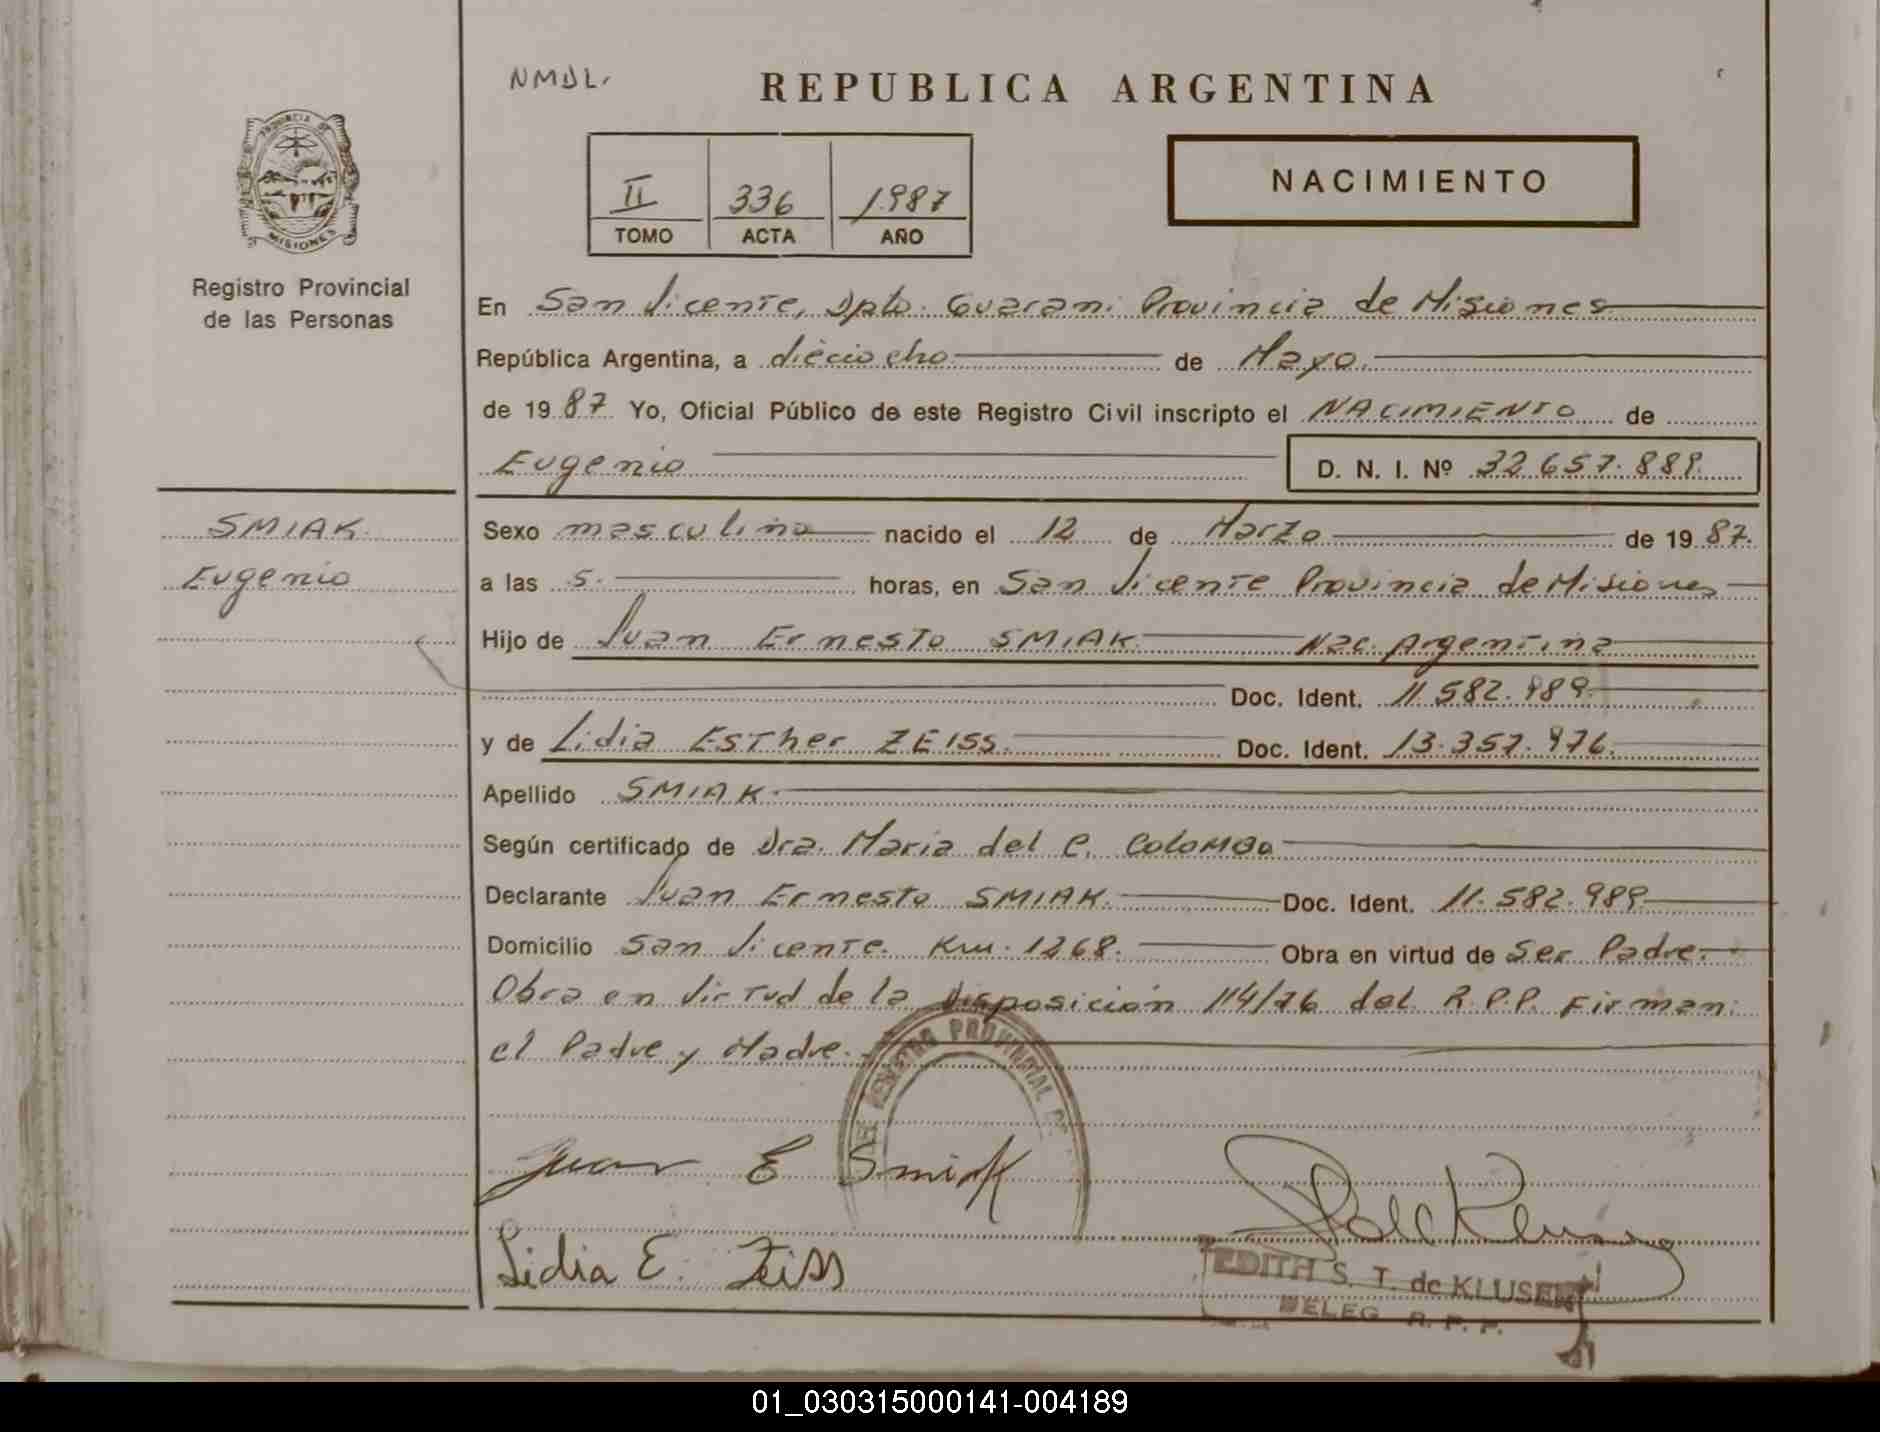 NMDL.
REPUBLICA ARGENTINA
PROVINCIA DE
MISIONES
Registro Provincial
de las Personas
II 336 1987
TOMO ACTA AÑO
NACIMIENTO
En San Vicente, Dpto. Guarani Provincia de Misiones
República Argentina, a dieciocho de Mayo.
de 1987 Yo, Oficial Público de este Registro Civil inscripto el NACIMIENTO de
Eugenio D. N. I. Nº 32.657.889.
SMIAK.
Eugenio
Sexo masculino nacido el 12 de Marzo de 1987.
a las 5. horas, en San Vicente Provincia de Misiones
Hijo de Juan Ernesto SMIAK. Nac. Argentina
Doc. Ident. 11.582.989.
y de Lidia Esther ZEISS. Doc. Ident. 13.357.976.
Apellido SMIAK.
Según certificado de Dra. Maria del C. Colombo
Declarante Juan Ernesto SMIAK. Doc. Ident. 11.582.989.
Domicilio San Vicente. Km. 1268. Obra en virtud de Ser Padre.
Obra en Virtud de la Disposición 114/76 del R.P.P. Firman:
el Padre y Madre.
REGISTRO PROVINCIAL DE
Juan E Smiak
Lidia E. Zeiss
EDITH S. T. de KLUSEN
DELEG R. P. P.
01_030315000141-004189